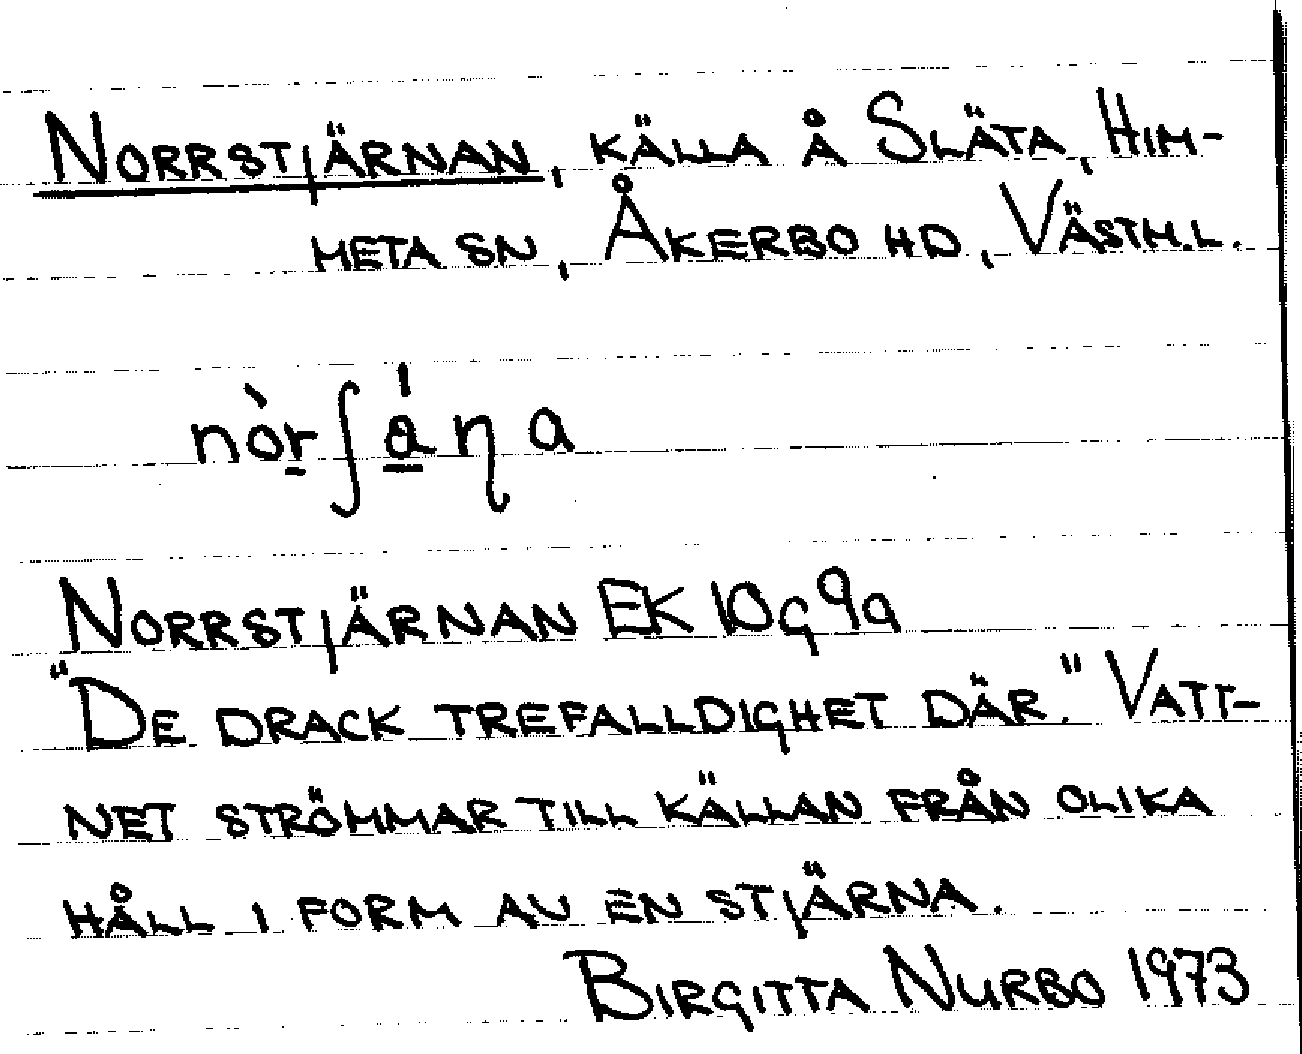 NORRSTJÄRNAN, KÄLLA Å SLÄTA, HIM-
META SN, ÅKERBO HD, VÄSTM.L.
nòr̲ʃá̲ηa
NORRSTJÄRNAN EK 10g9a
"DE DRACK TREFALLDIGHET DÄR." VATT-
NET STRÖMMAR TILL KÄLLAN FRÅN OLIKA
HÅLL I FORM AV EN STJÄRNA.
BIRGITTA NURBO 1973